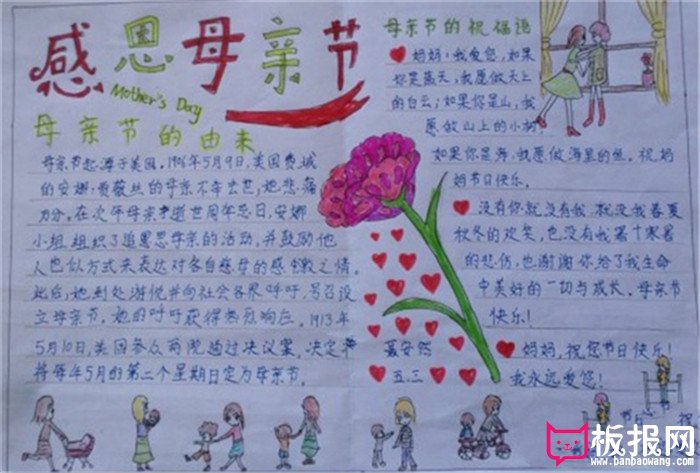 感恩母亲节
Mother's Day
母亲节的由来
母亲节起源于美国。1906年5月9日,美国费城
的安娜·贾薇丝的母亲不幸去世,她悲痛
万分。在次年母亲逝世周年忌日,安娜
小姐组织了追思母亲的活动,并鼓励他
人也以类似方式来表达对各自慈母的感激之情。
此后,她到处游说并向社会各界呼吁,号召设
立母亲节。她的呼吁获得热烈响应。1913年
5月10日,美国参众两院通过决议案,决定
将每年5月的第二个星期日定为母亲节。
母亲节的祝福语
妈妈:我爱您,如果
你是蓝天,我愿做天上
的白云;如果你是山,我
愿做山上的小树
如果你是海,我愿做海里的鱼。祝妈
妈节日快乐。
没有你就没有我,就没我春夏
秋冬的欢笑,也没有我暑寒
的悲伤,也谢谢你给了我生命
中美好的一切与成长。母亲节
快乐!
妈妈,祝您节日快乐!
我永远爱您!
聂安然
五.三
板报网
www.banbaowang.com